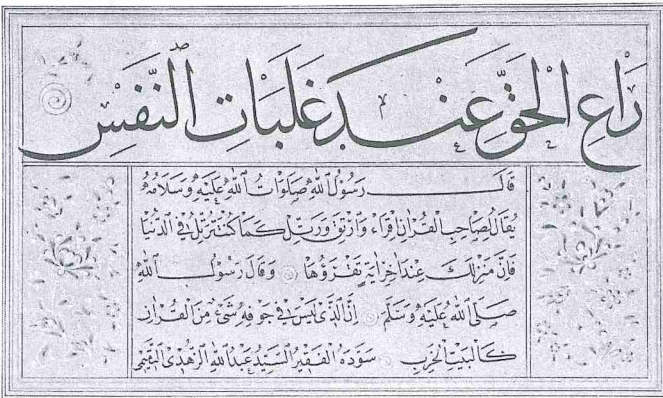 رَاعِ الْحَقَّ عِنْدَ غَلَبَاتِ النَّفْسِ
قَالَ رَسُولُ اللهِ صَلَوَاتُ اللهِ عَلَيْهِ وَسَلَامُهُ
يُقَالُ لِصَاحِبِ الْقُرْاٰنِ اقْرَاءْ وَارْتَقِ وَرَتِّلْ كَمَا كُنْتَ تُرَتِّلُ فِي الدُّنْيَا
فَاِنَّ مَنْزِلَكَ عِنْدَ اٰخِرِ اٰيَةٍ تَقْرَؤُهَا وَقَالَ رَسُولُ اللهِ
صَلَّى اللهُ عَلَيْهِ وَسَلَّمَ اِنَّ الَّذِي لَيْسَ فِي جَوْفِهِ شَيْءٌ مِنَ الْقُرْاٰنِ
كَالْبَيْتِ الْخَرِبِ سَوَّدَهُ الْفَقِيرُ السَّيِّدُ عَبْدُ اللهِ الزُّهْدِيُّ التَّمِيمِي